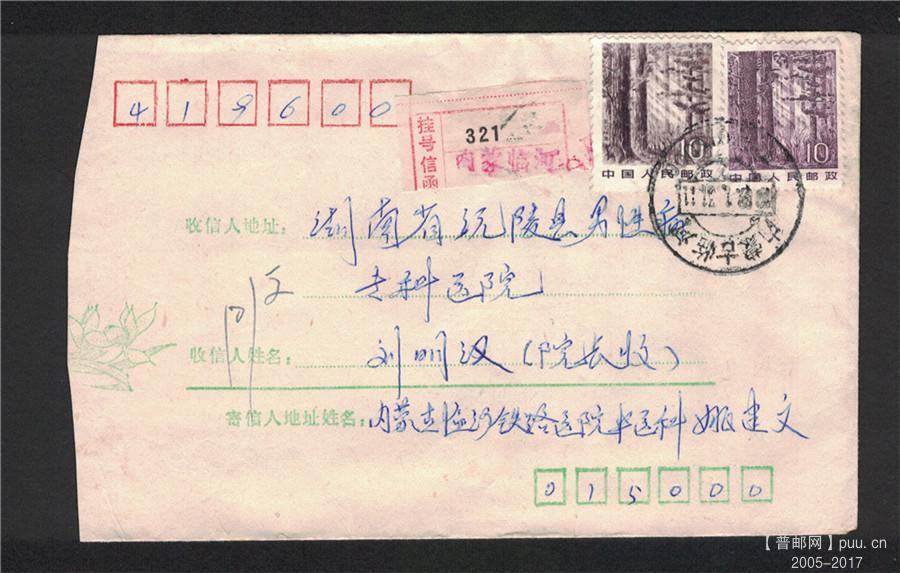 419600
挂号信函
321
内蒙临河
10
中国人民邮政
10
中国人民邮政
内蒙古临河
收信人地址: 湖南省沅陵县男性病
专科医院
收信人姓名: 刘明汉(院长收)
寄信人地址姓名: 内蒙古临河铁路医院中医科 姬建文
015000
【普邮网】puu.cn
2005-2017